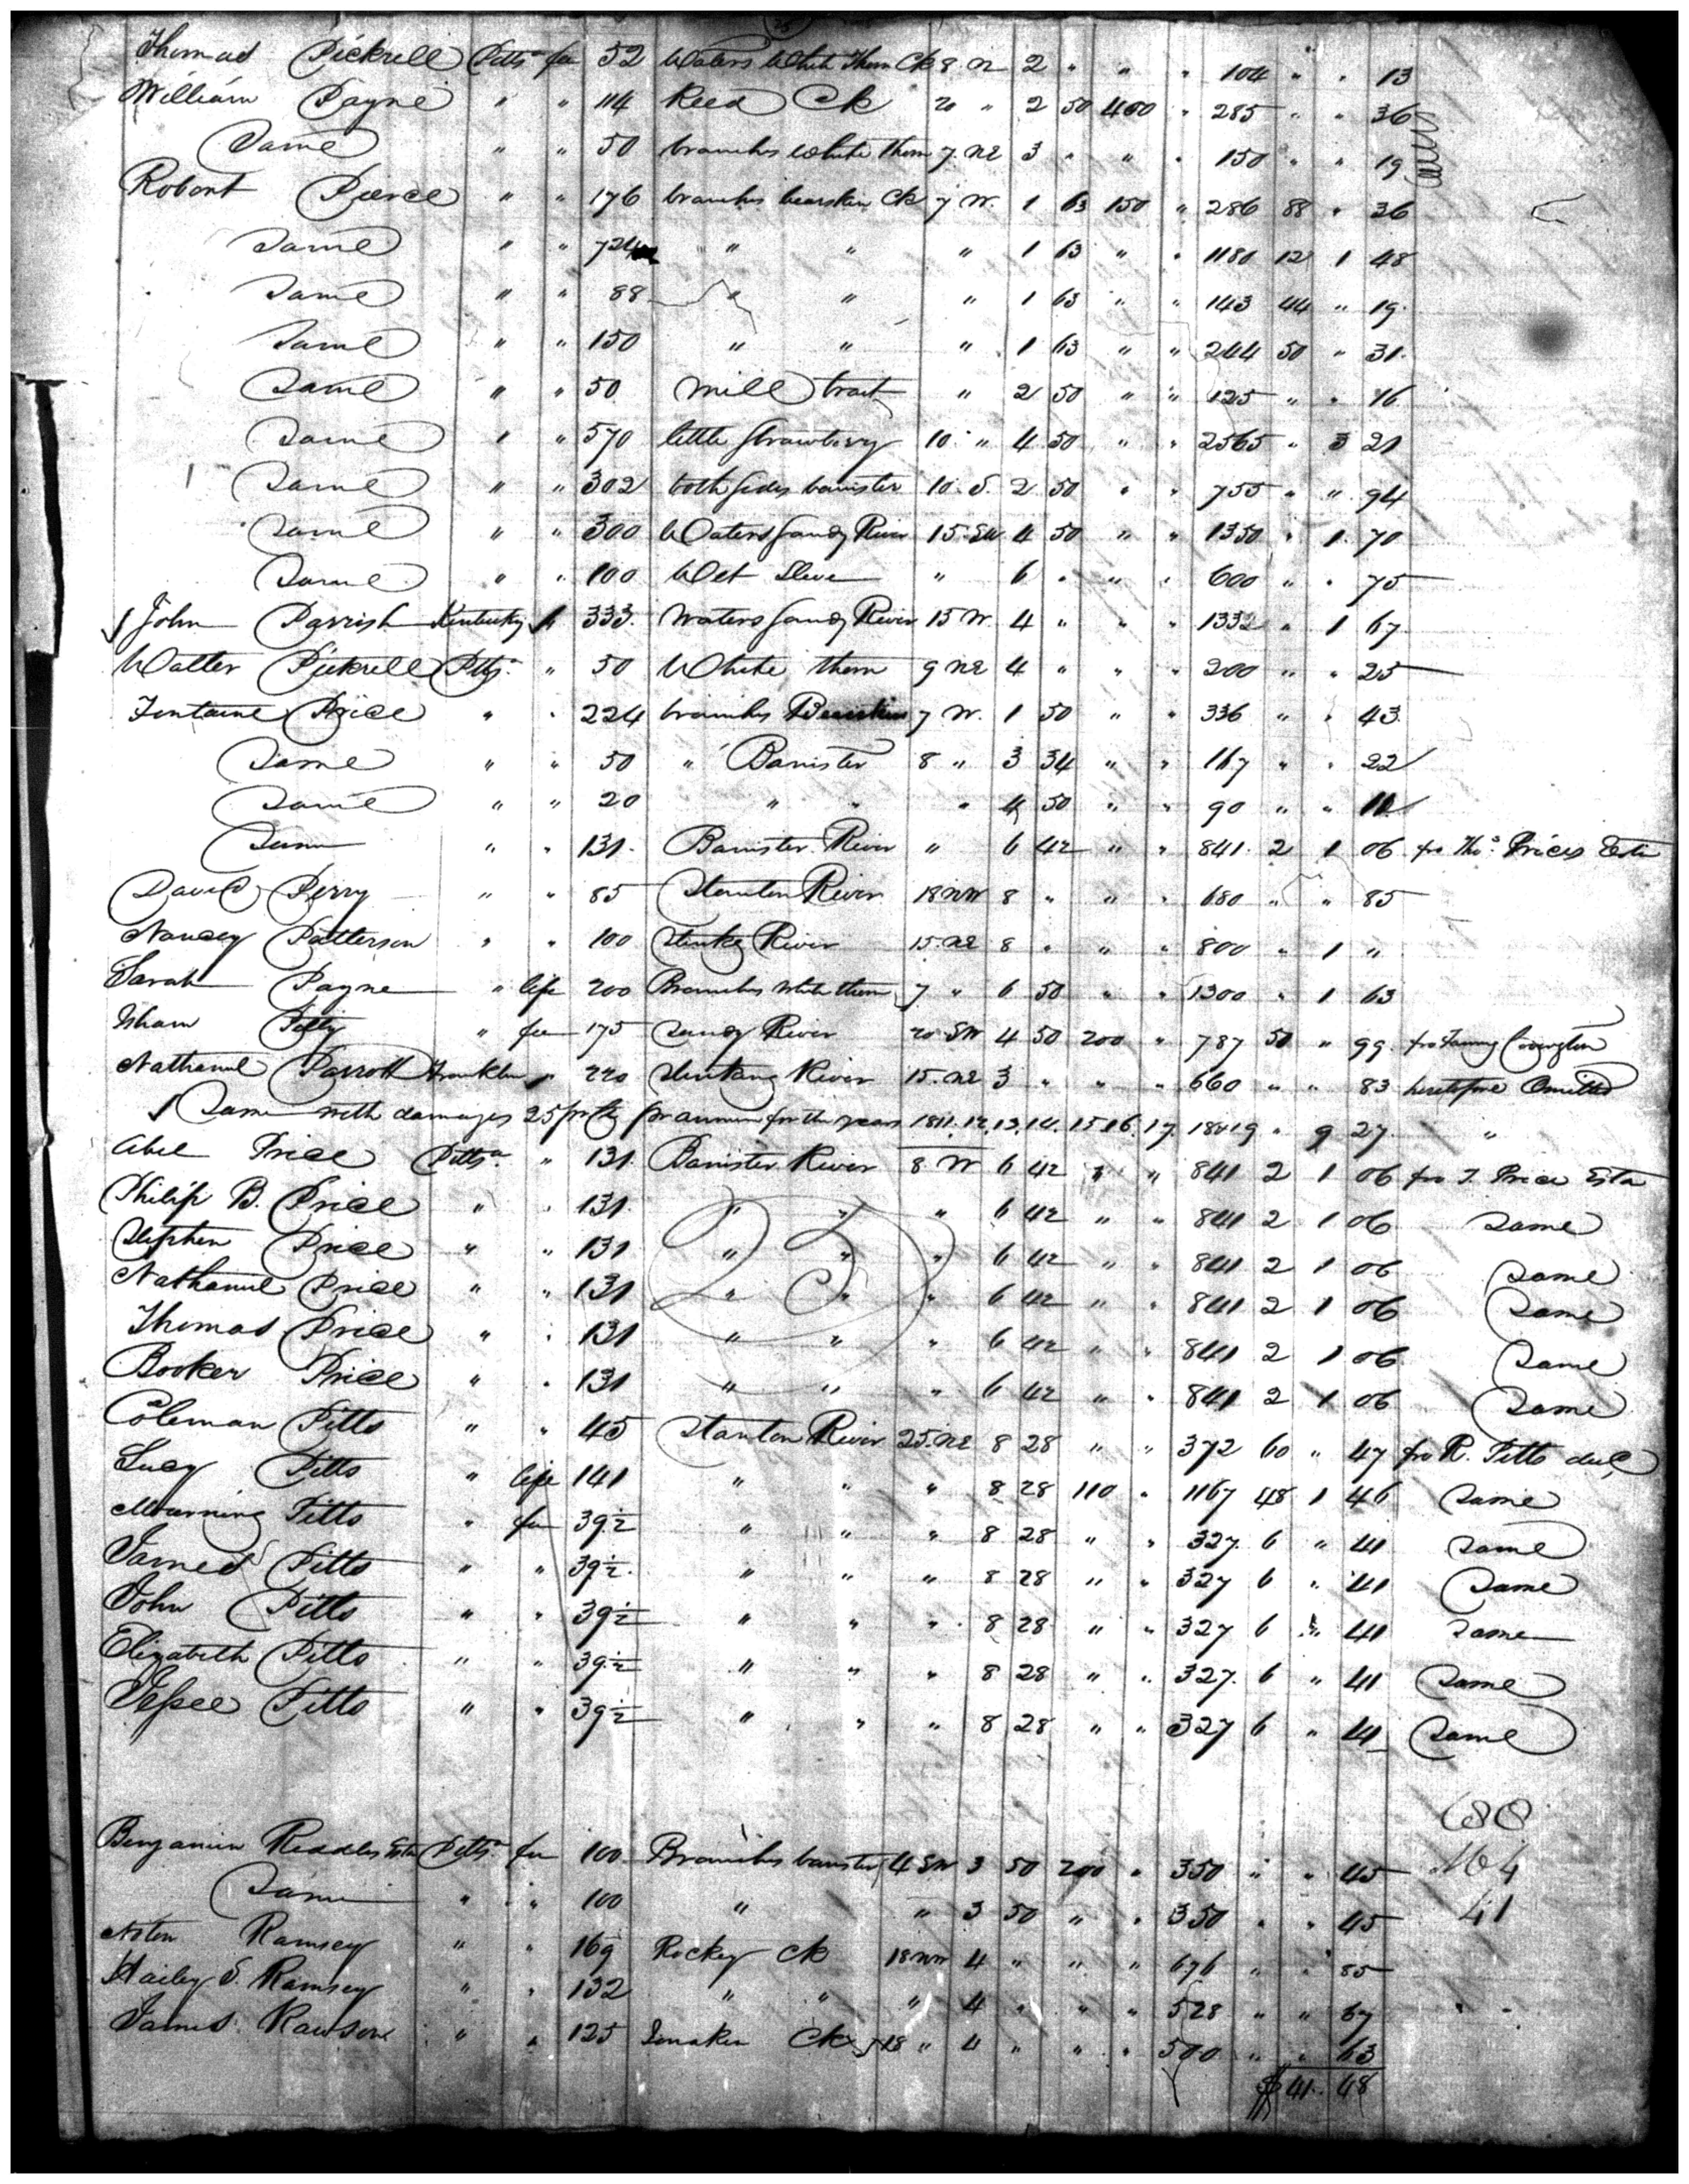 Thomas Pickrell Pittsa fee 52 Waters White Thorn Ck 8 N 2 " " " 104 " " 13
William Payne " " 114 Reed Ck 20 " 2 50 400 " 285 " " 36
Same " " 50 branches white thorn 7 NE 3 " " " 150 " " 19
Robert Pierce " " 176 branches bearskin Ck 7 W. 1 63 150 " 286 88 " 36
Same " " 724 " " " 1 63 " " 1180 12 1 48
Same " " 88 " " " 1 63 " " 143 44 " 19
Same " " 150 " " " 1 63 " " 244 50 " 31
Same " " 50 mill tract " 2 50 " " 125 " " 16
Same " " 570 little Strawbery 10 " 4 50 " " 2565 " 3 21
Same " " 302 both sides banister 10 S. 2 50 " " 755 " " 94
Same " " 300 Waters Sandy River 15 SW 4 50 " " 1350 " 1 70
Same " " 100 Wet " 6 " " " 600 " " 75
John Parrish Kentucky " 333 Waters Sandy River 15 W. 4 " " " 1332 " 1 67
Walter Pickrell Pitts " 50 White thorn 9 NE 4 " " " 200 " " 25
Fontaine Price " " 224 branches Bearskin 7 W. 1 50 " " 336 " " 43
Same " " 50 " Banister 8 " 3 34 " " 167 " " 22
Same " " 20 " " " 4 50 " " 90 " " 11
Same " " 131 Banister River " 6 42 " " 841 2 1 06 fro Thos. Prices Esta
David Perry " " 85 Stanton River 18 NW 8 " " " 680 " " 85
Nancy Patterson " " 100 River 15 NE 8 " " " 800 " 1 "
Sarah Payne " life 200 Branches White thorn 7 " 6 50 " " 1300 " 1 63
Isham Petty " fee 175 Sandy River 20 SW 4 50 200 " 787 50 " 99 fro Fanny Covington
Nathaniel Parrott Franklin " 220 River 15 NE 3 " " " 660 " " 83 heretofore Omitted
Same with damages 25 pr Ct pr annum for the years 1811. 12. 13. 14. 15 16. 17. 18 & 19 " 9 27 "
Abel Price Pittsa " 131 Banister River 8 W 6 42 " " 841 2 1 06 fro T. Price Esta
Philip B. Price " " 131 " " " 6 42 " " 841 2 1 06 Same
Stephen Price " " 131 " " " 6 42 " " 841 2 1 06 Same
Nathaniel Price " " 131 " " " 6 42 " " 841 2 1 06 Same
Thomas Price " " 131 " " " 6 42 " " 841 2 1 06 Same
Booker Price " " 131 " " " 6 42 " " 841 2 1 06 Same
Coleman Pitts " " 45 Stanton River 25 NE 8 28 " " 372 60 " 47 fro R. Pitts decd
Lucy Pitts " life 141 " " " 8 28 110 " 1167 48 1 46 Same
Mourning Pitts " fee 39½ " " " 8 28 " " 327 6 " 41 Same
James Pitts " " 39½ " " " 8 28 " " 327 6 " 41 Same
John Pitts " " 39½ " " " 8 28 " " 327 6 " 41 Same
Elizabeth Pitts " " 39½ " " " 8 28 " " 327 6 " 41 Same
Jessee Pitts " " 39½ " " " 8 28 " " 327 6 " 41 Same
25
68
Benjamin Riddles Esta Pittsa fee 100 Branches banister 4 SW 3 50 200 " 350 " " 45
Same " " 100 " " 3 50 " " 350 " " 45
41
Ramsey " " 169 Rockey Ck 18 NW 4 " " " 676 " " 85
Hailey S. Ramsey " " 132 " " " 4 " " " 528 " " 67
James Rawson " " 125 Ck 18 " 4 " " " 500 " " 63
$ 41. 48